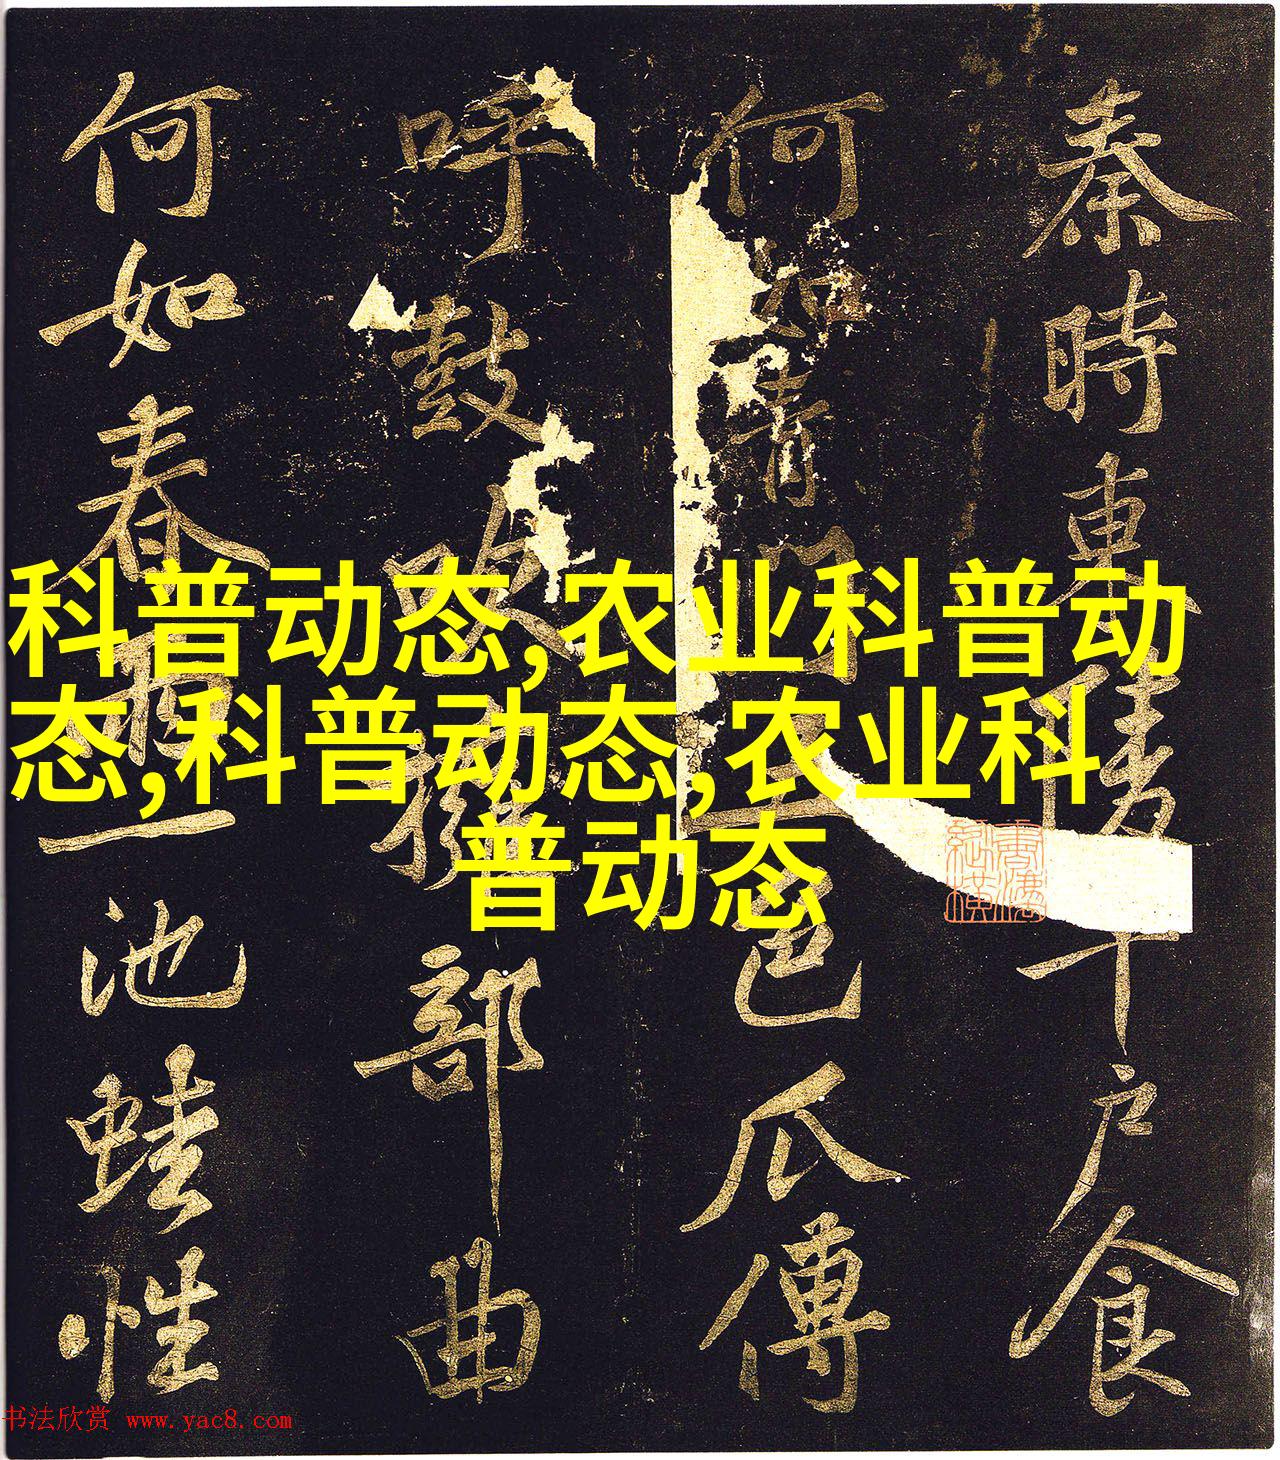 秦時東陵千戶食
何如青門五色瓜傳
呼鼓吹擁部曲
何如春雨一池蛙性
科普动态,农业科普动
态,科普动态,农业科
普动态
书法欣赏 www.yac8.com